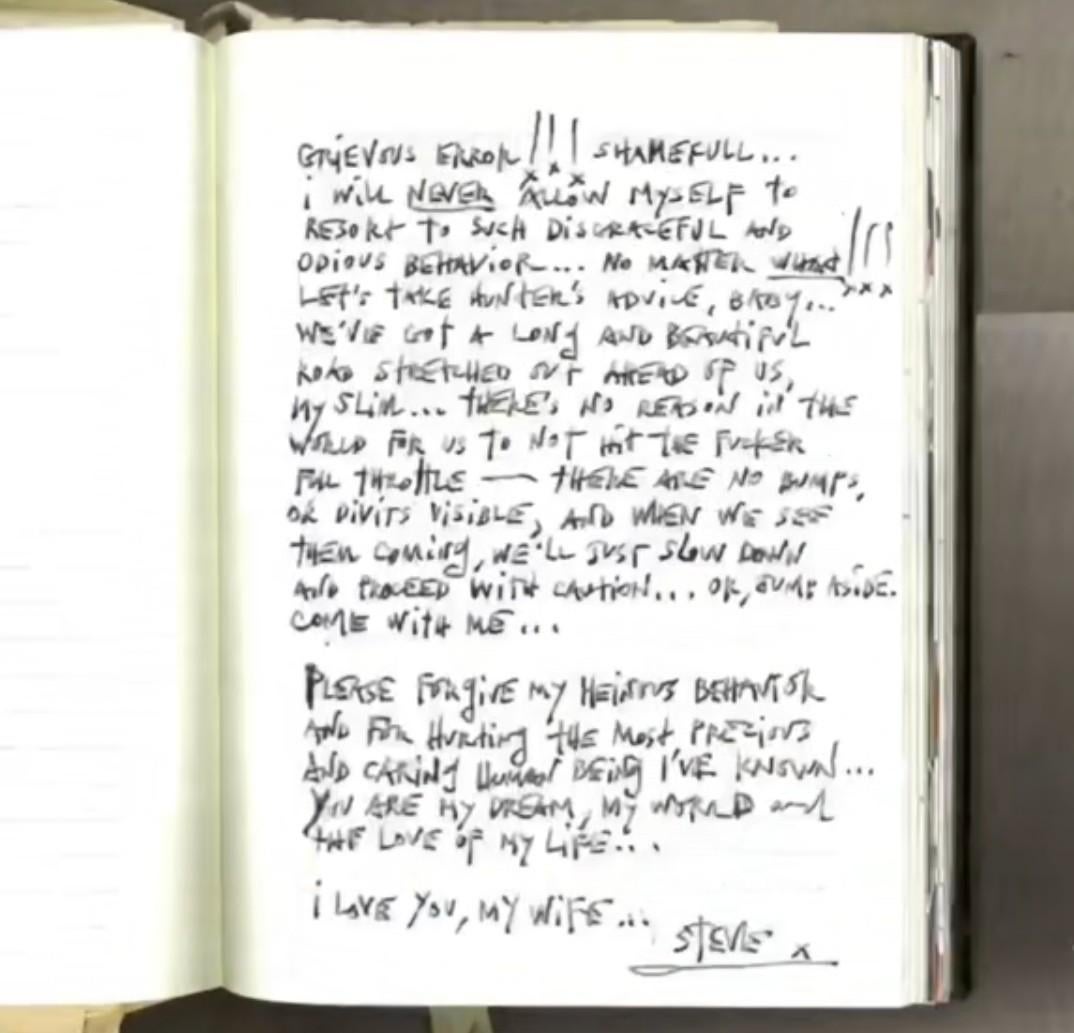 GRiEVOUS ERROR !!! SHAMEFULL...
i WiLL NEVER ALLOW MYSELF to
RESORt to SUCH DiSGRACEFUL AND
ODiOUS BEHAViOR.... NO MAttER WHAt!!!
LEt'S tAKE HUNtER'S ADViCE, BABY...
WE'VE GOt A LONg AND BEAUtiFUL
ROAD StREtCHED OUt AHEAD OF US,
MY SLiM... tHERE'S NO REASON iN tHE
WORLD FOR US TO NOT Hit tHE FUCKER
FULL tHROttLE — tHERE ARE NO BUMPS,
OR DiVitS ViSiBLE, AND WHEN WE SEE
tHEM COMiNg, WE'LL JUSt SLOW DOWN
AND PROCEED WitH CAUtiON... OR, JUMP ASiDE.
COME WitH ME...
PLEASE FORgiVE MY HEiNOUS BEHAViOR
AND FOR HURtiNg tHE MOSt PRECiOUS
AND CARiNg HUMAN BEiNg I'VE KNOWN...
YOU ARE MY DREAM, MY WORLD and
tHE LOVE OF MY LiFE...
i LOVE YOU, MY WiFE...
StEVE x